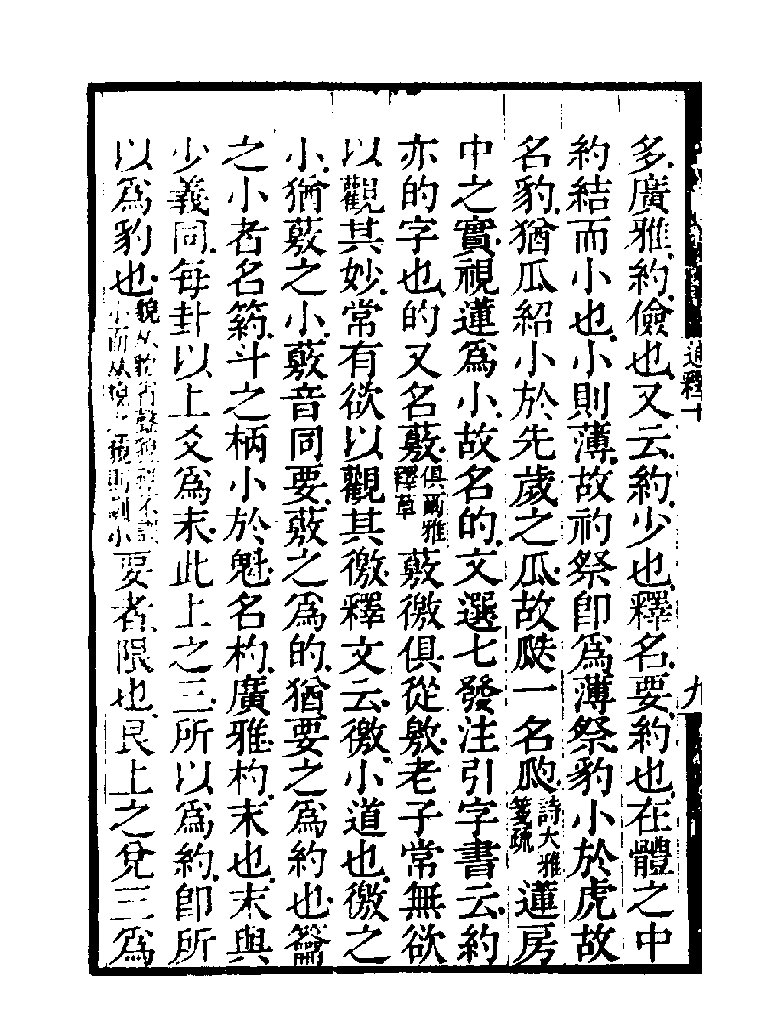 多廣雅約儉也又云約少也釋名要約也在體之中
約結而小也小則薄故礿祭卽爲薄祭豹小於虎故
名豹猶瓜紹小於先歲之瓜故瓞一名瓝詩大雅箋疏蓮房
中之實視蓮爲小故名的文選七發注引字書云約
亦的字也的又名薂俱爾雅釋草薂徼俱從敫老子常無欲
以觀其妙常有欲以觀其徼釋文云徼小道也徼之
小猶薂之小薂音同要薂之爲的猶要之爲約也籥
之小者名箹斗之柄小於魁名杓廣雅杓末也末與
少義同每卦以上爻爲末此上之三所以爲約卽所
以爲豹也要者限也艮上之兌三爲
通釋十
九